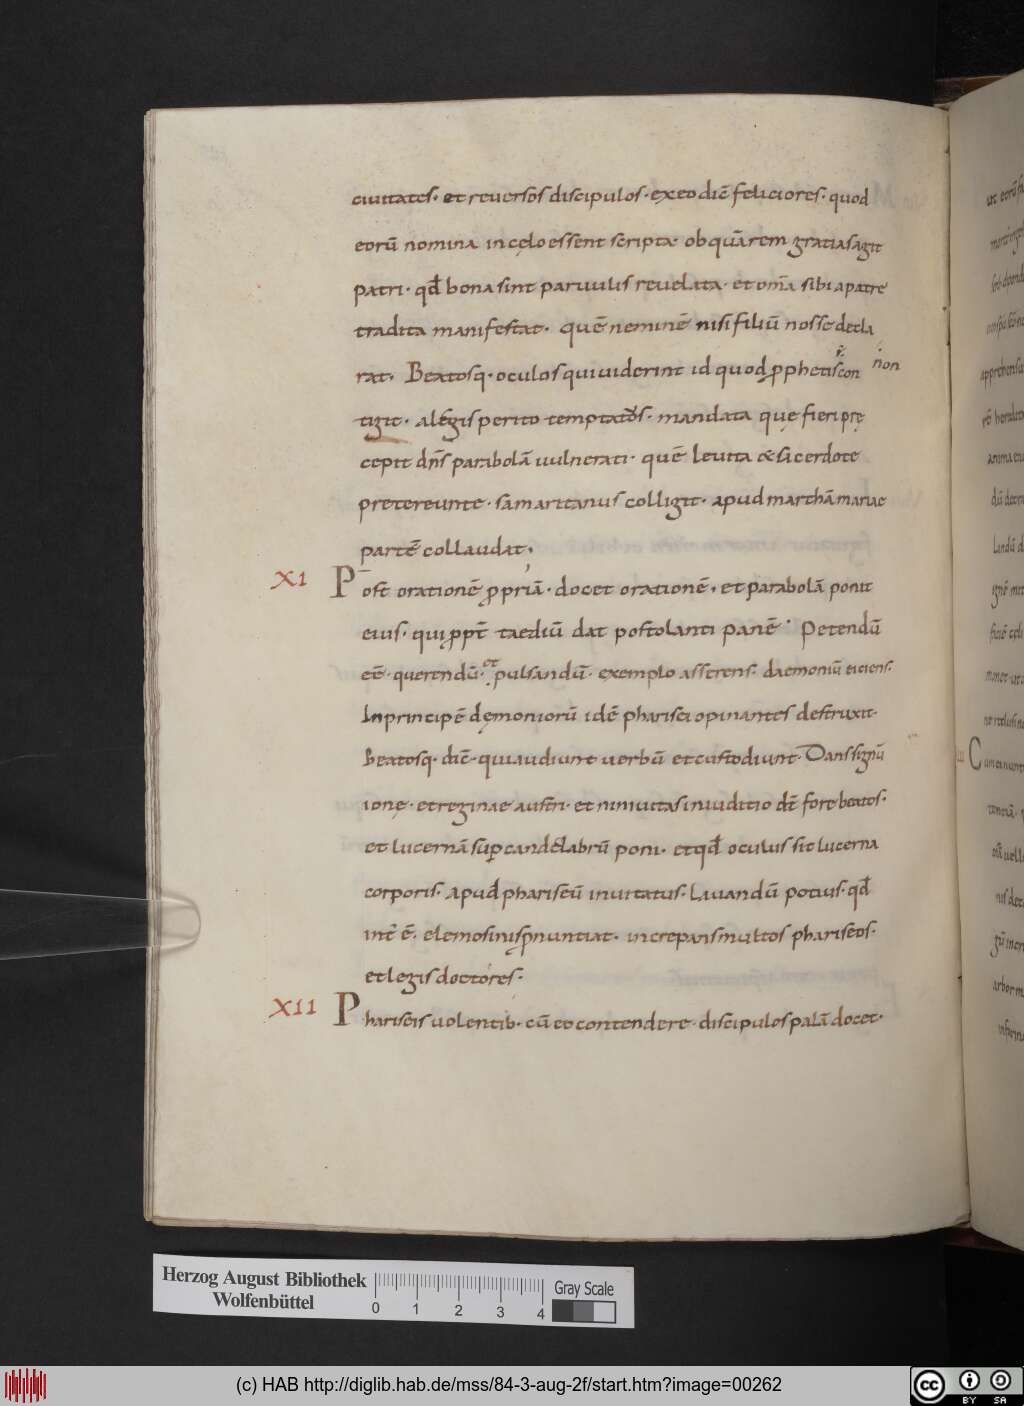 ciuitates· et reuersos discipulos· ex eo dic̄ feliciores· quod
eorū nomina in cęlo essent scripta· ob quā rem gratias agit
patri· qđ bona sint paruulis reuelata· et om̄a sibi a patre
tradita manifestat· quē neminē nisi filiū nosse decla
rat· Beatosq· oculos qui uiderint id quod ꝓphetis con
n̄on
tigit· a legis perito temptatos· mandata quę fieri prę
cepit dn̄s parabolā uulnerati· quē leuita & sacerdote
pretereunte· samaritanus colligit· apud marthā mariae
partē collaudat·
XI
Post orationē ꝓpriā· docet orationē· et parabolā ponit
eius· qui ꝓpt̄ taediū dat postolanti panē· Petendū
eē· querendū· et pulsandū· exemplo asserens· daemoniū eiciens·
In principē dęmoniorū idē pharisei opinantes destruxit·
Beatosq· dic̄· qui audiunt uerbū et custodiunt· Dans signū
ionę· et reginae austri· et niniuitas in iuditio dc̄ fore beatos·
et lucernā suꝑ candelabrū poni· et qđ oculus sit lucerna
corporis· Apud phariseū inuitatus· Lauandū potius· qđ
int̄ ē· elemosinis ꝓnuntiat· increpans multos phariseos·
et legis doctores·
XII
Phariseis uolentib· cū eo contendere· discipulos palā docet·
Herzog August Bibliothek
Wolfenbüttel
0 1 2 3 4
Gray Scale
(c) HAB http://diglib.hab.de/mss/84-3-aug-2f/start.htm?image=00262
cc BY SA